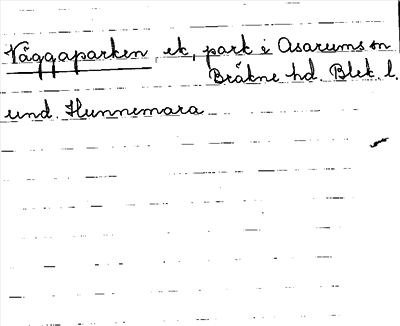 Väggaparken, ek, park i Asarums sn
Bräkne hd. Blek. l.
und. Hunnemara